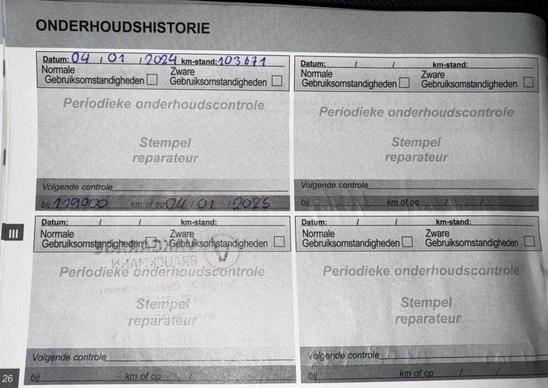 ONDERHOUDSHISTORIE
Datum: 04 / 01 / 2024 km-stand: 103671
Normale Gebruiksomstandigheden
Zware Gebruiksomstandigheden
Periodieke onderhoudscontrole
Stempel
reparateur
Volgende controle
bij 119900 km of op 04 / 01 / 2025
Datum: / / km-stand:
Normale Gebruiksomstandigheden
Zware Gebruiksomstandigheden
Periodieke onderhoudscontrole
Stempel
reparateur
Volgende controle
bij km of op / /
III
Datum: / / km-stand:
Normale Gebruiksomstandigheden
Zware Gebruiksomstandigheden
Periodieke onderhoudscontrole
Stempel
reparateur
Volgende controle
bij km of op / /
Datum: / / km-stand:
Normale Gebruiksomstandigheden
Zware Gebruiksomstandigheden
Periodieke onderhoudscontrole
Stempel
reparateur
Volgende controle
bij km of op / /
26